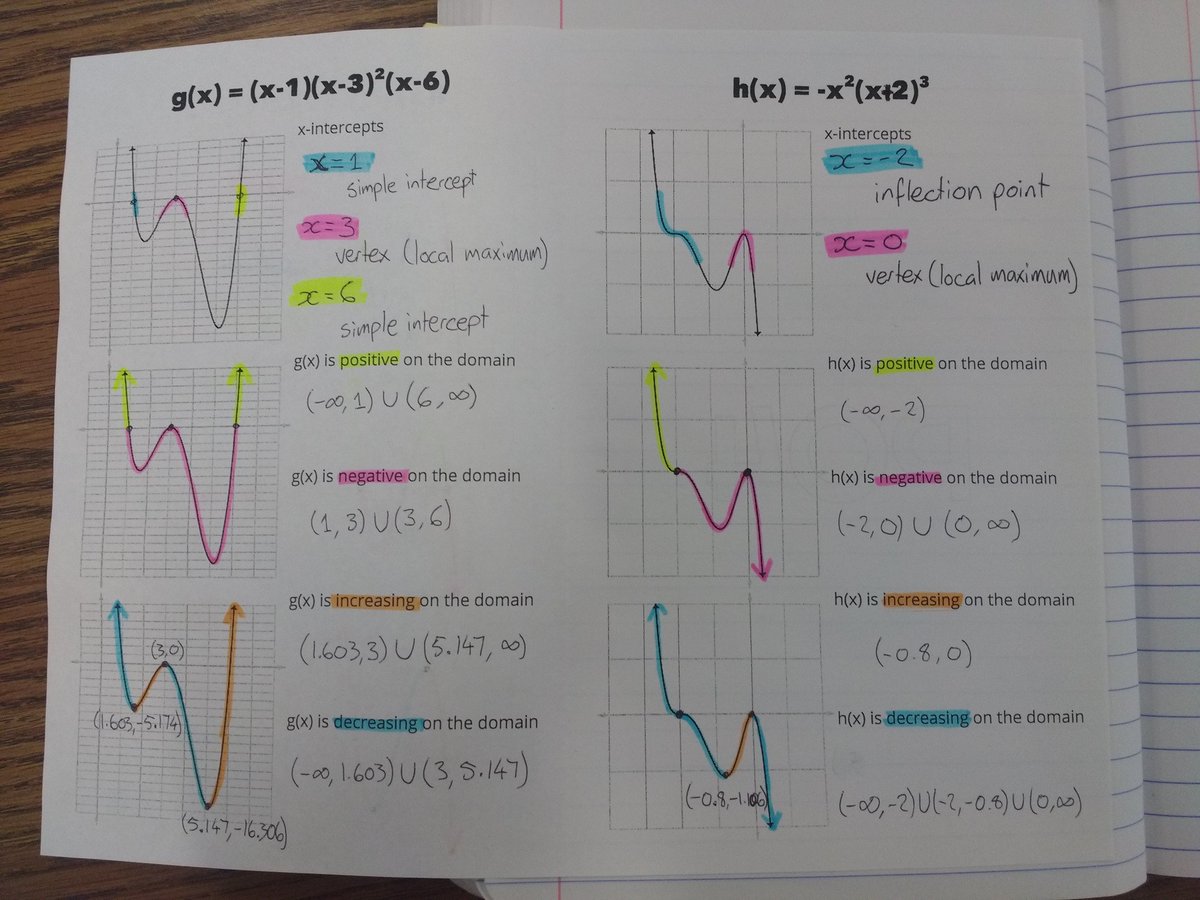 g(x) = (x-1)(x-3)²(x-6)
x-intercepts
x=1
simple intercept
x=3
vertex (local maximum)
x=6
simple intercept
g(x) is positive on the domain
(-∞, 1) ∪ (6, ∞)
g(x) is negative on the domain
(1, 3) ∪ (3, 6)
g(x) is increasing on the domain
(1.603, 3) ∪ (5.147, ∞)
(3,0)
(1.603, -5.174)
g(x) is decreasing on the domain
(-∞, 1.603) ∪ (3, 5.147)
(5.147, -16.306)
h(x) = -x²(x+2)³
x-intercepts
x=-2
inflection point
x=0
vertex (local maximum)
h(x) is positive on the domain
(-∞, -2)
h(x) is negative on the domain
(-2, 0) ∪ (0, ∞)
h(x) is increasing on the domain
(-0.8, 0)
h(x) is decreasing on the domain
(-0.8, -1.106)
(-∞, -2) ∪ (-2, -0.8) ∪ (0, ∞)